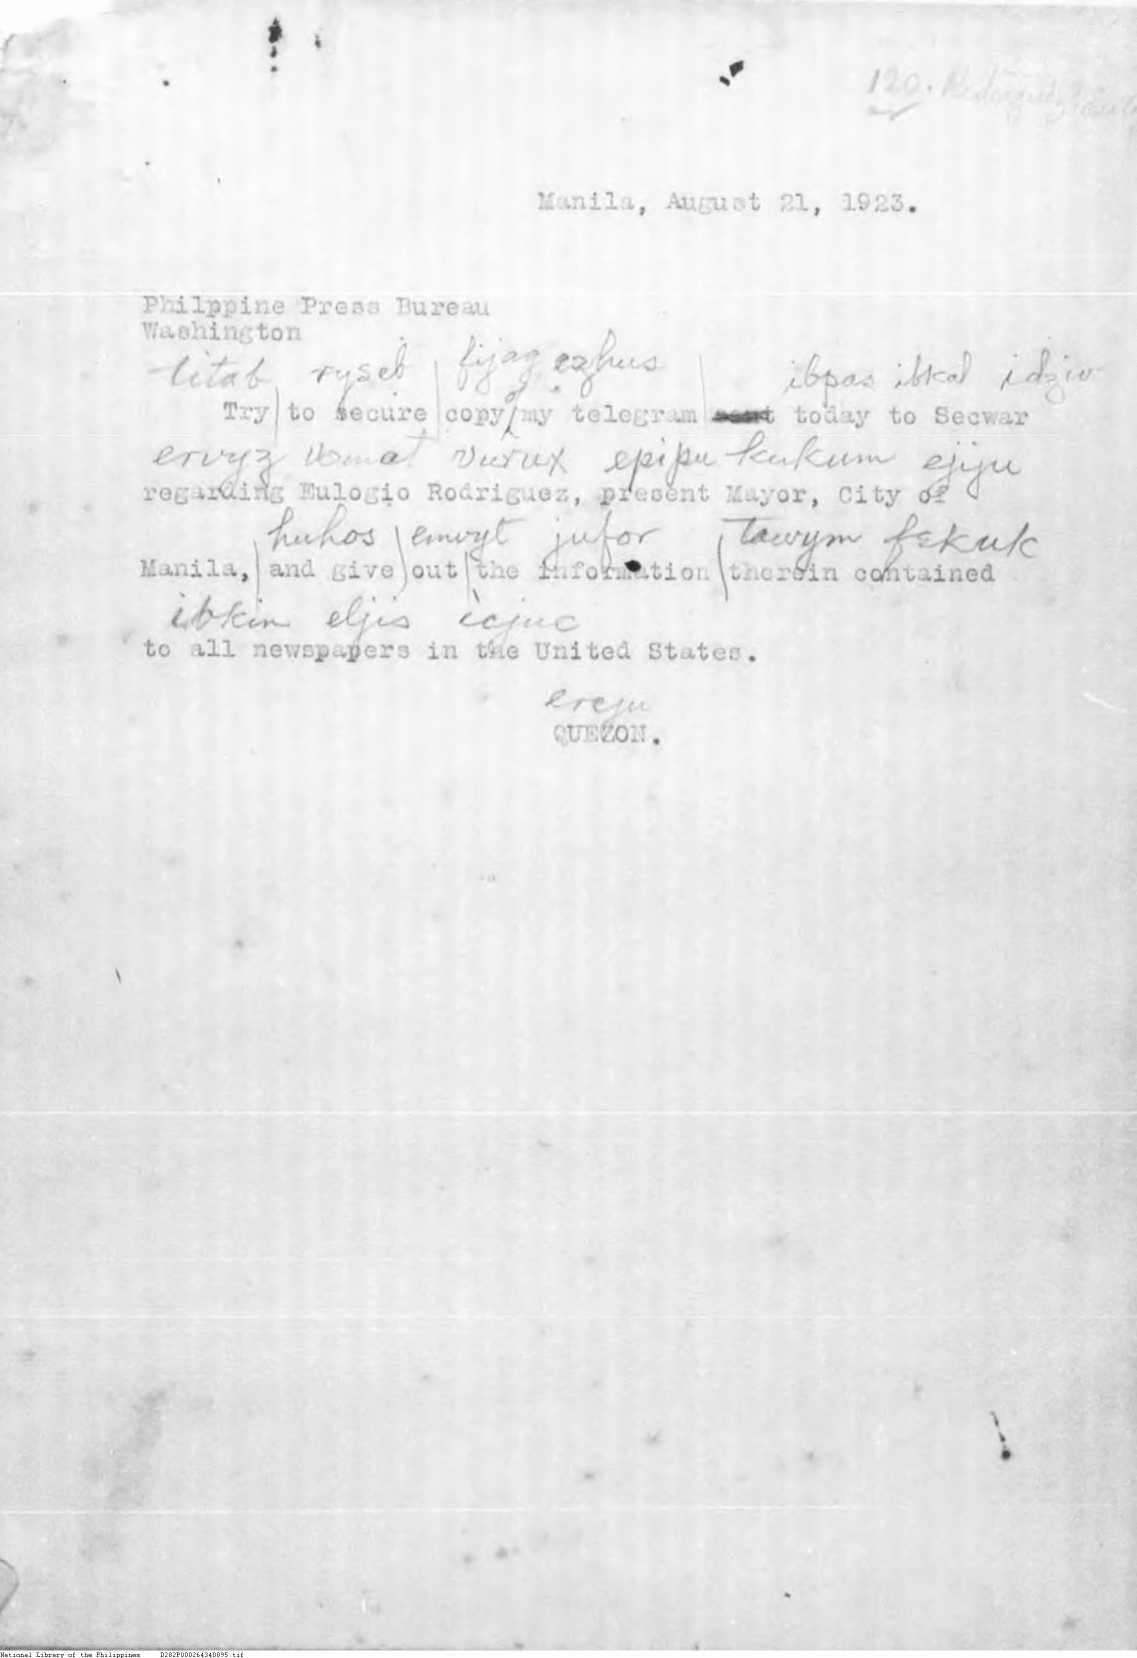 120.
Manila, August 21, 1923.
Philppine Press Bureau
Washington
titab ryseb fijag ezhus ibpas ibkal idziv
Try to secure copy of my telegram today to Secwar
ervyz usmat vurux epipu kukum ejiju
regarding Eulogio Rodriguez, present Mayor, City of
huhos emvyt jufor tawym fekuk
Manila, and give out the information therein contained
ibkin eljis icjuc
to all newspapers in the United States.
ereju
QUEZON.
National Library of the Philippines D282P000264340095.tif